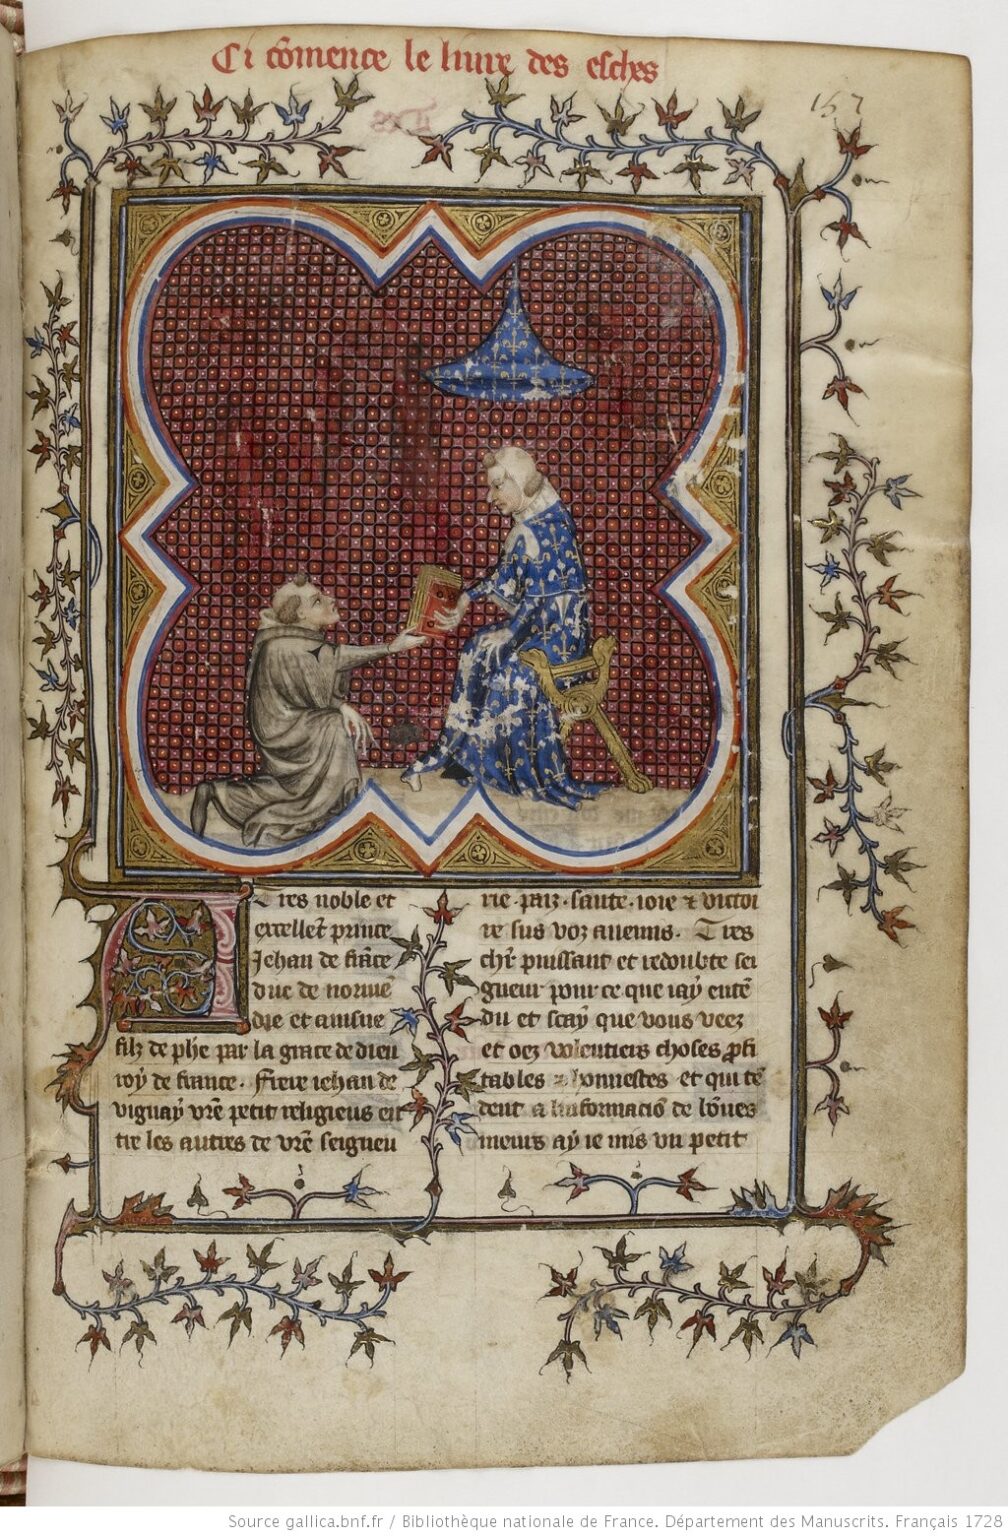 Ci cōmence le liure des esches
157
Tres noble et
excellēt prince
Jehan de frāce
duc de normē
die et ainsne
filz de phe par la grace de dieu
roy de france. Frere iehan de
vignay vr̄e petit religieus en
tre les autres de vr̄e seigneu
rie. paiz. sante. ioie ⁊ victoi
re sus voz anemis. Tres
chr̄ puissant et redoubte sei
gneur pour ce que iay entē
du et scay que vous veez
et oez volentiers choses ꝓfi
tables ⁊ honnestes et qui tē
dent a linformacio de bōnes
meurs ay ie mis vn petit
Source gallica.bnf.fr / Bibliothèque nationale de France. Département des Manuscrits. Français 1728